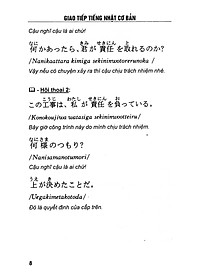 GIAO TIẾP TIẾNG NHẬT CƠ BẢN
Cậu nghĩ cậu là ai chứ!
なに きみ せきにん と
何かあったら、君が責任を取れるのか?
/Nanikaattara kimiga sekininwotorerunoka /
Vậy nếu có chuyện xảy ra thì cậu chịu trách nhiệm nhé.
- Hội thoại 2:
こうじ わたし せきにん お
この工事は、私が責任を負っている。
/Konokoujiwa watasiga sekininwootteiru/
Bây giờ công trình này do mình chịu trách nhiệm.
なにさま
何様のつもり?
/Nanisamanotumori/
Cậu nghĩ cậu là ai chứ!
うえ き
上が決めたことだ。
/Uegakimetakotoda/
Đó là quyết định của cấp trên.
8